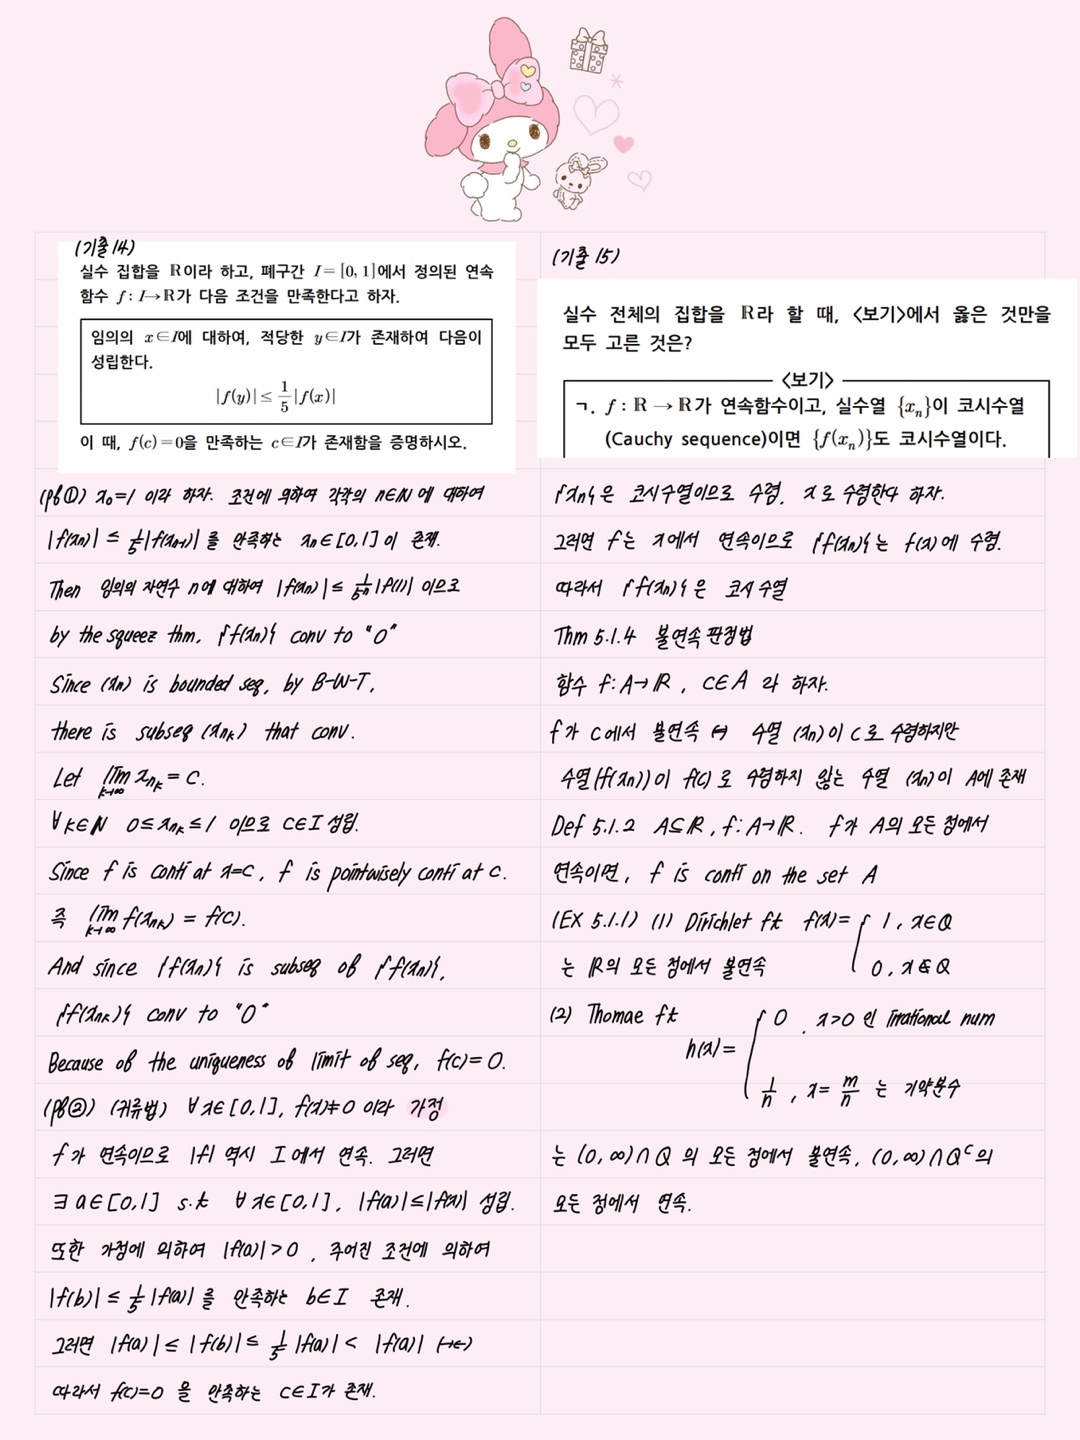 (기출 14)
실수 집합을 ℝ이라 하고, 폐구간 I=[0, 1]에서 정의된 연속
함수 f : I→ℝ가 다음 조건을 만족한다고 하자.
임의의 x∈I에 대하여, 적당한 y∈I가 존재하여 다음이
성립한다.
|f(y)| ≤ 1/5 |f(x)|
이 때, f(c)=0을 만족하는 c∈I가 존재함을 증명하시오.
(pf①) x₀=1 이라 하자. 조건에 의하여 각각의 n∈ℕ에 대하여
|f(xn)| ≤ 1/5|f(xn-1)| 를 만족하는 xn∈[0,1]이 존재.
Then 임의의 자연수 n에 대하여 |f(xn)| ≤ 1/5ⁿ |f(1)| 이므로
by the squeez thm, {f(xn)} conv to "0"
Since (xn) is bounded seq, by B-W-T,
there is subseq (xnk) that conv.
Let lim k→∞ xnk = c.
∀k∈ℕ 0≤xnk≤1 이므로 c∈I 성립.
Since f is conti at x=c, f is pointwisely conti at c.
즉 lim k→∞ f(xnk) = f(c).
And since {f(xnk)} is subseq of {f(xn)},
{f(xnk)} conv to "0"
Because of the uniqueness of limit of seq, f(c)=0.
(pf②) (귀류법) ∀x∈[0,1], f(x)≠0 이라 가정
f가 연속이므로 |f| 역시 I에서 연속. 그러면
∃a∈[0,1] s.t ∀x∈[0,1], |f(a)|≤|f(x)| 성립.
또한 가정에 의하여 |f(a)|>0, 주어진 조건에 의하여
|f(b)| ≤ 1/5 |f(a)| 를 만족하는 b∈I 존재.
그러면 |f(a)| ≤ |f(b)| ≤ 1/5 |f(a)| < |f(a)| (→←)
따라서 f(c)=0 을 만족하는 c∈I가 존재.
(기출 15)
실수 전체의 집합을 ℝ라 할 때, <보기>에서 옳은 것만을
모두 고른 것은?
<보기>
ㄱ. f : ℝ → ℝ가 연속함수이고, 실수열 {xn}이 코시수열
(Cauchy sequence)이면 {f(xn)}도 코시수열이다.
{xn}은 코시수열이므로 수렴. x로 수렴한다 하자.
그러면 f는 x에서 연속이므로 {f(xn)}는 f(x)에 수렴.
따라서 {f(xn)}은 코시수열
Thm 5.1.4 불연속 판정법
함수 f:A→ℝ, c∈A 라 하자.
f가 c에서 불연속 ⇔ 수열 (xn)이 c로 수렴하지만
수열(f(xn))이 f(c)로 수렴하지 않는 수열 (xn)이 A에 존재
Def 5.1.2 A⊆ℝ, f:A→ℝ. f가 A의 모든 점에서
연속이면, f is conti on the set A
(EX 5.1.1) (1) Dirichlet ft f(x)= { 1, x∈ℚ
는 ℝ의 모든 점에서 불연속 0, x∉ℚ
(2) Thomae ft
h(x)= { 0, x>0 인 irrational num
1/n, x= m/n 는 기약분수
는 (0,∞)∩ℚ의 모든 점에서 불연속, (0,∞)∩ℚᶜ의
모든 점에서 연속.